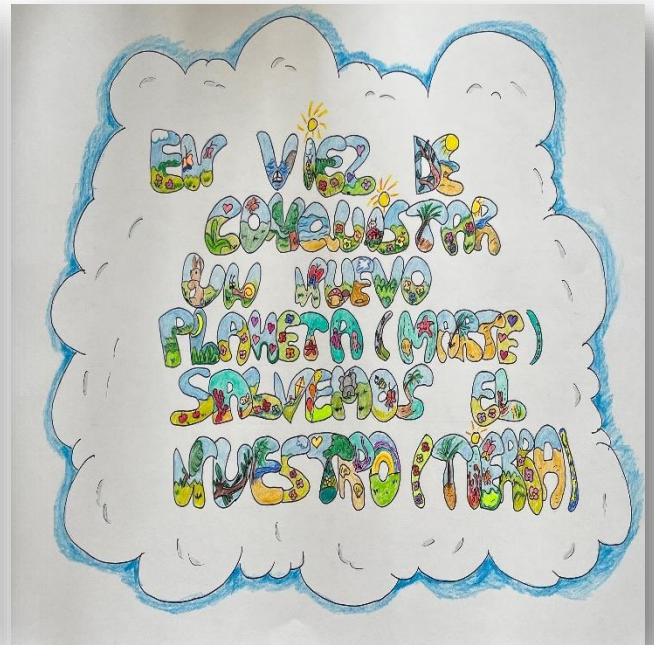 EN VIEZ DE
CONQUISTAR
UN NUEVO
PLANETA (MARTE)
SALVEMOS EL
NUESTRO (TIERRA)